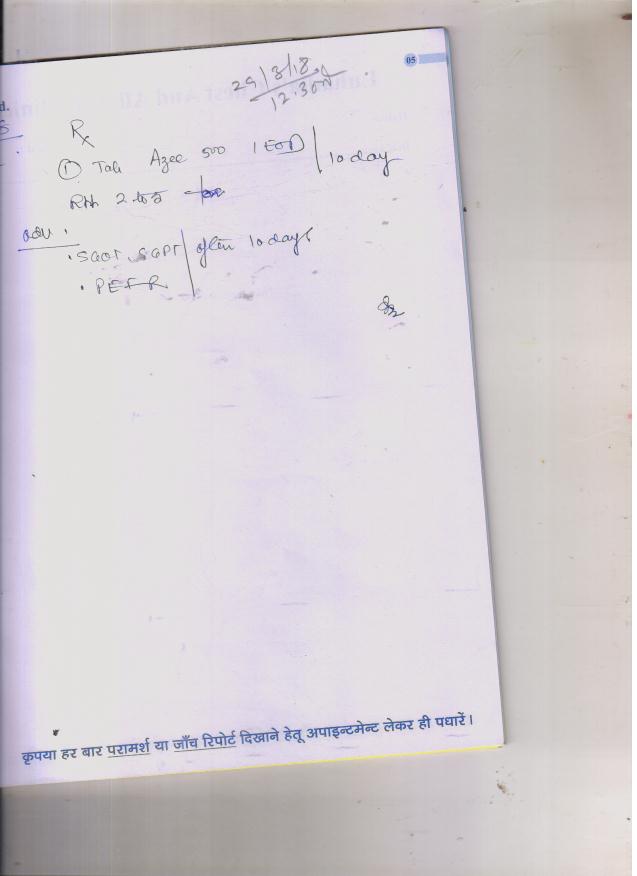 05
29/3/18
12.30
Rx
① Tab Azee 500 1 EOD | 10 day
2 से 3
Adv.
• SGOT, SGPT | after 10 days
• PEFR
कृपया हर बार परामर्श या जाँच रिपोर्ट दिखाने हेतू अपाइन्टमेन्ट लेकर ही पधारें।